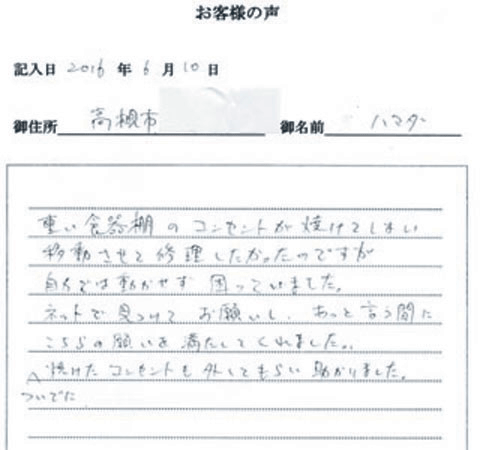 お客様の声
記入日 2016 年 6 月 10 日
御住所 高槻市 御名前 ハマダ
重い食器棚のコンセントが焼けてしまい
移動させて修理したかったのですが
自分では動かせず 困っていました。
ネットで見つけて お願いし、あっと言う間に
こちらの願いを満たしてくれました。
焼けたコンセントも外してもらい助かりました。
ついでに